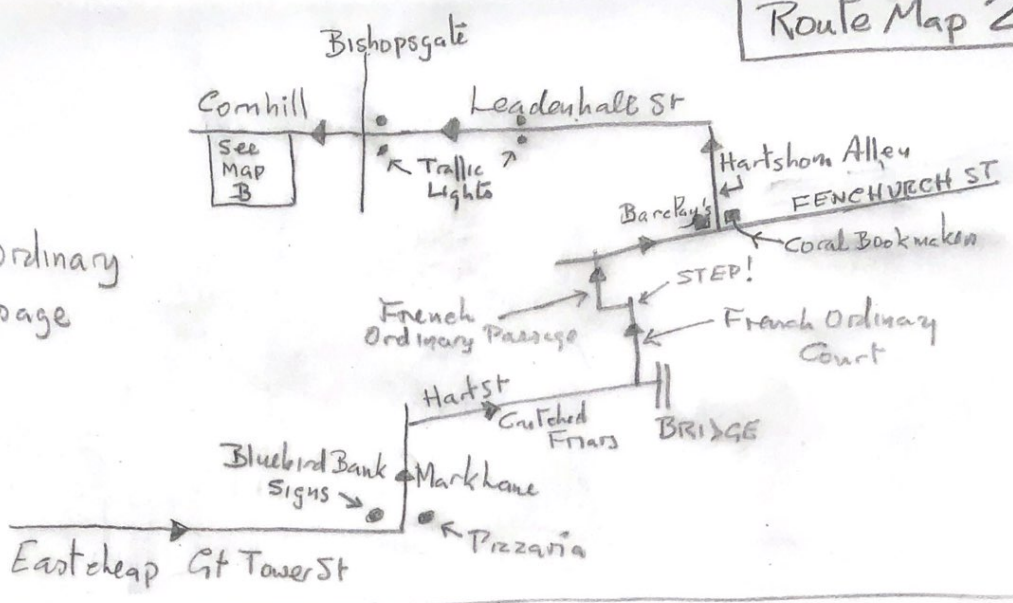 Route Map 2
Bishopsgate
Cornhill
Leadenhall St
See
Map
B
Traffic
Lights
Hartshorn Alley
FENCHURCH ST
Barclay's
Coral Bookmakers
Ordinary
STEP!
French
Ordinary Passage
French Ordinary
Court
Hart St
Crutched
Friars
BRIDGE
Bluebird Bank
Signs
Mark Lane
Pizzaria
Eastcheap
Gt Tower St